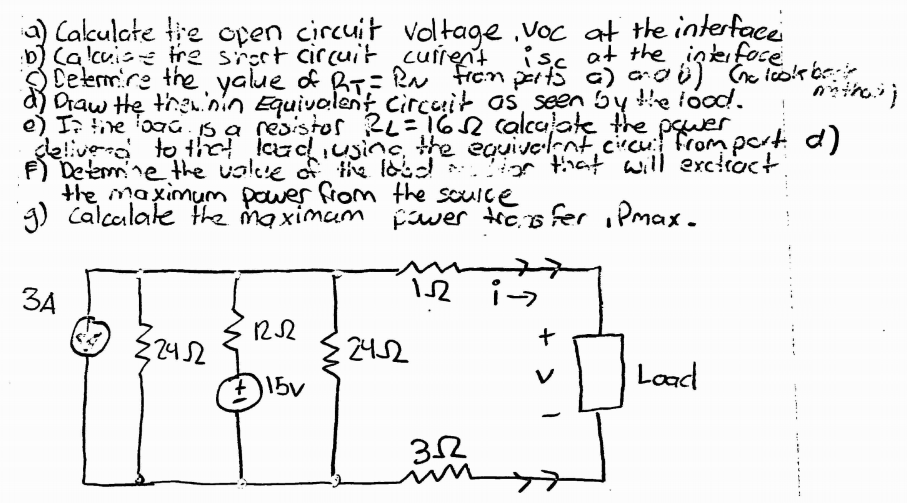 a) Calculate the open circuit voltage, Voc at the interface
b) Calculate the short circuit current isc at the interface
c) Determine the value of RT = RN from parts a) and b) (no look back method)
d) Draw the thevinin Equivalent Circuit as seen by the load.
e) If the load is a resistor RL = 16Ω calculate the power
delivered to that load, using the equivalent circuit from part d)
F) Determine the value of the load that will exctract
the maximum power from the source
g) Calculate the maximum power transfer, Pmax.
3A
1Ω
i→
24Ω
12Ω
24Ω
+
15v
+
v
-
Load
3Ω